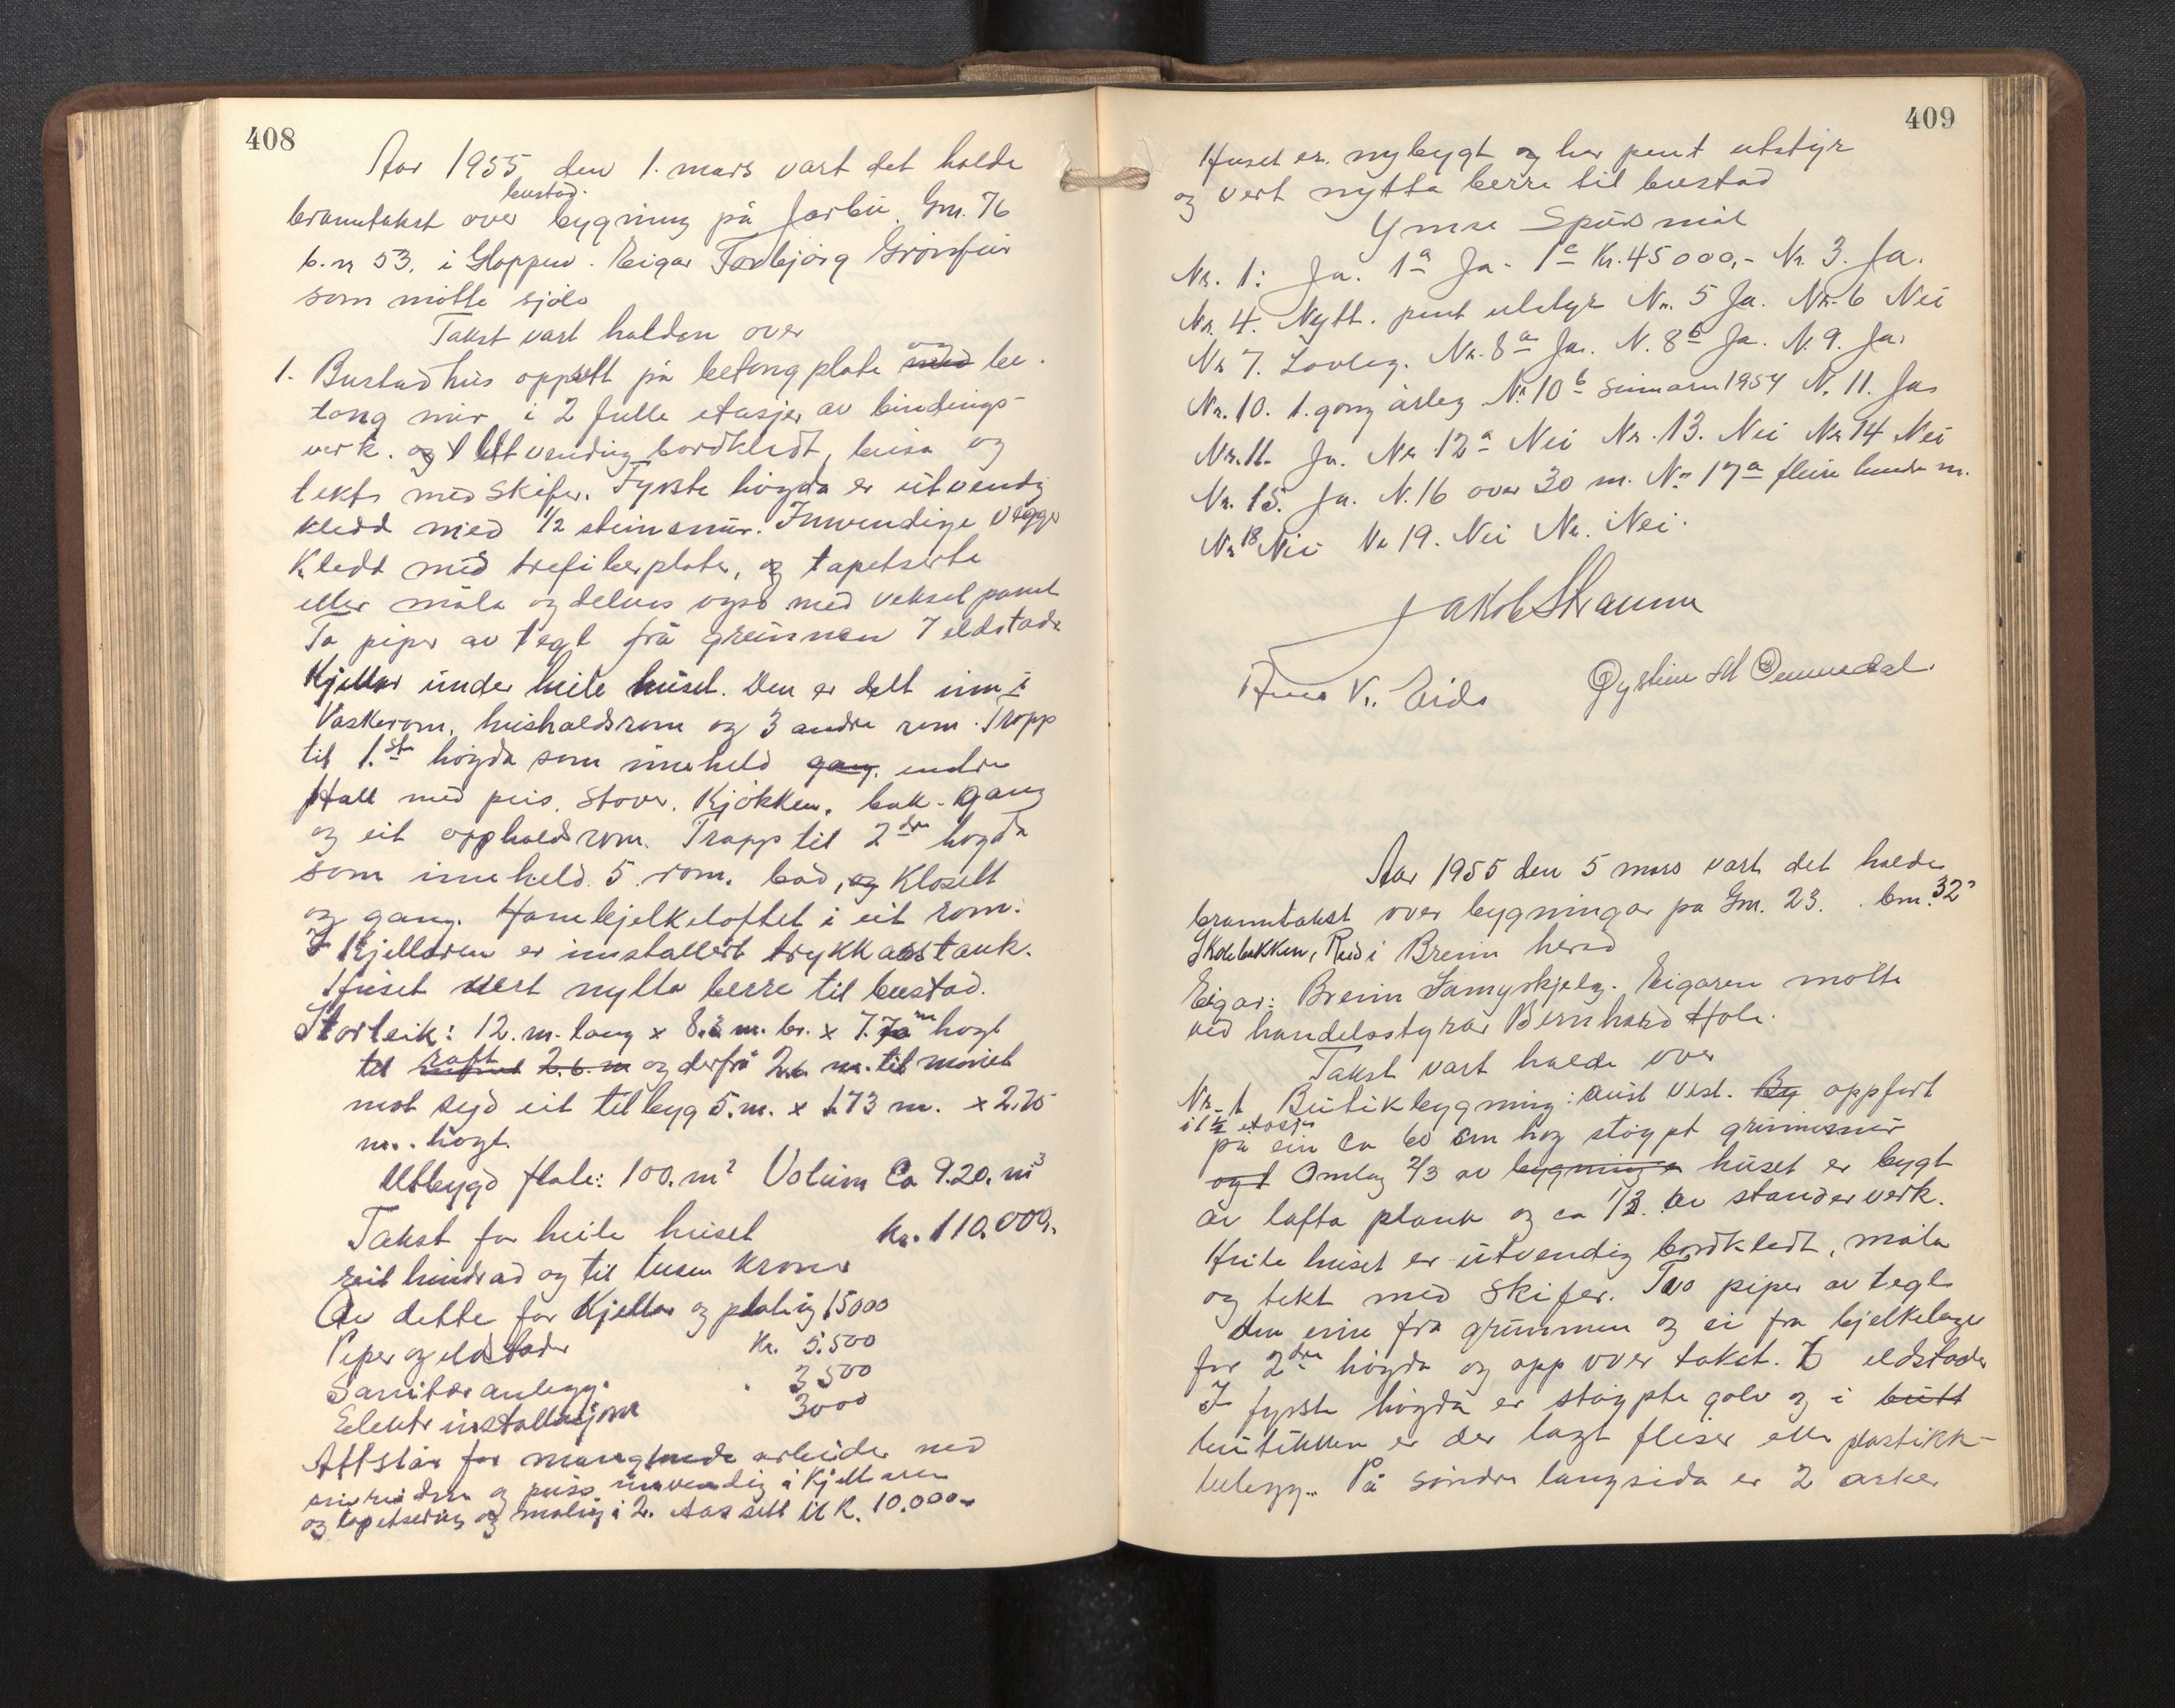 408
Aar 1955 den 1. mars vart det halde
bustad.
branntakst over bygning på Jarbu. Gnr. 76
b.nr 53. i Gloppen. Eigar Torbjørg Grønfur
som møtte sjølv
Takst vart halden over
og
1. Bustadhus oppsett på betongplate med be-
tong mur i 2 fulle etasjer av bindings-
verk. og Utvendig bordkledt, huса og
tekt med skifer. Fyrste høgda er utvendig
kledd med 1/2 steinsmur. Innvendige vegge
kledd med trefiberplater, og tapetserte
eller måla og delvis også med veksel panel
To piper av tegl frå grunnen 7 eldstade
Kjellar under heile huset. Den er delt inn i
Vaskerom, hushaldsrom og 3 andre rom. Tropp
til 1.ste høgda som inneheld gang. indre
Hall med peis. Stover. Kjøkken. bak-gang
og eit oppholdsrom. Trapp til 2dre høgda
som inneheld 5 rom. bad, og Klosett
og gang. Hanebjelkeloftet i eit rom.
I Kjellaren er installert trykkasstank.
Huset vert nytta berre til bustad.
Storleik: 12. m. lang x 8.3 m. br. x 7.70 m høgt
til raft 2.6. m og derfrå 2.6 m. til mønet
mot syd eit tilbyg 5. m. x 1.73 m. x 2.75
m. høgt.
Utbygd flate: 100. m² Volum Ca 920. m³
Takst for heile huset kr. 110.000.
eit hundrad og ti tusen kroner
Av dette for Kjellar og plating 15000
Piper og eldstader kr. 5.500
Sanitær anlegg. " 3500
Elektr installasjon 3000
Attstår for manglande arbeider med
innreidn og puss innvendig i kjellaren
og tapetsering og maling i 2. etas sett til K. 10.000.-
409
Huset er nybygt og har pent utstyr
og vert nytta berre til bustad
Ymse Spursmål
Nr. 1: Ja. 1a Ja. 1c Kr. 45000,- Nr. 3. Ja.
Nr. 4. Nytt. pent utstyr Nr. 5 Ja. Nr. 6 Nei
Nr 7. Lovleg. Nr. 8a Ja. N. 8b Ja. N. 9. Ja.
Nr. 10. 1. gong årleg Nr 10b sumarn 1954 N. 11. Ja
Nr. 11. Ja. Nr 12a Nei Nr. 13. Nei Nr 14 Nei
Nr. 15. Ja. N. 16 over 30 m. Nr 17a fleire hundre m.
Nr 18 Nei Nr 19. Nei Nr. Nei.
Jakob Straume
Hans K. Eide Øystein M Ommedal
Aar 1955 den 5 mars vart det halde
branntakst over bygningar på Gnr. 23. bnr. 32
Skolebakken, Reed i Breim herad
Eigar: Breim Samyrkjelag. Eigaren møtte
ved handelsstyrar Bernhard Hole.
Takst vart halde over
Nr. 1 Butikbygning: aust vest. By oppført
i 1 1/2 etasje
på ein ca 60 cm høg støypt grunnmur
og t Omlag 2/3 av bygningen huset er bygt
av lafta plank og ca 1/3 av standerverk.
Heile huset er utvendig bordkledt, måla
og tekt med skifer. Two piper av tegl
den eine fra grunnen og ei fra bjelkelage
for 2dre høgda og opp over taket. 7 eldstader
I fyrste høgda er støypte golv og i butt
butikken er der lagt fliser eller plastikk-
belegg. På søndre langsida er 2 arker